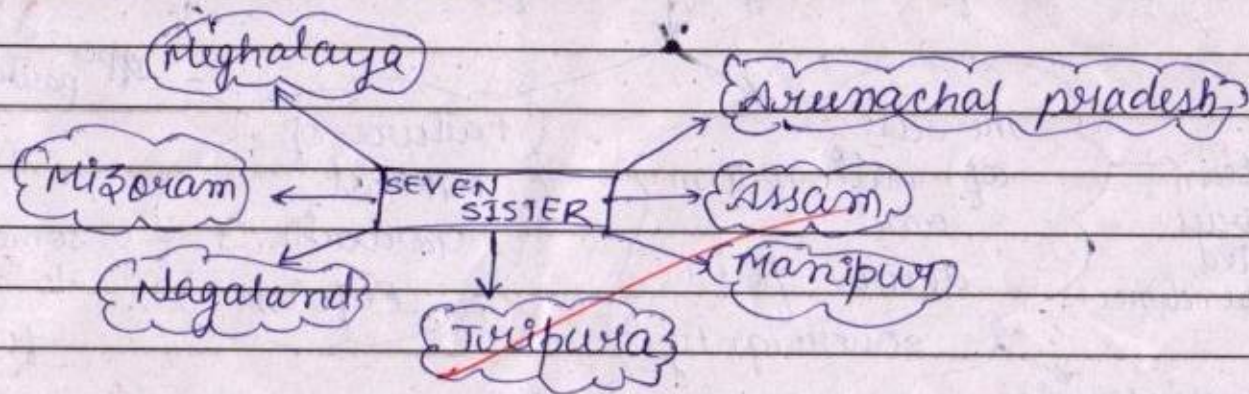 Meghalaya
Arunachal pradesh
Mizoram
SEVEN
SISTER
Assam
Nagaland
Manipur
Tripura